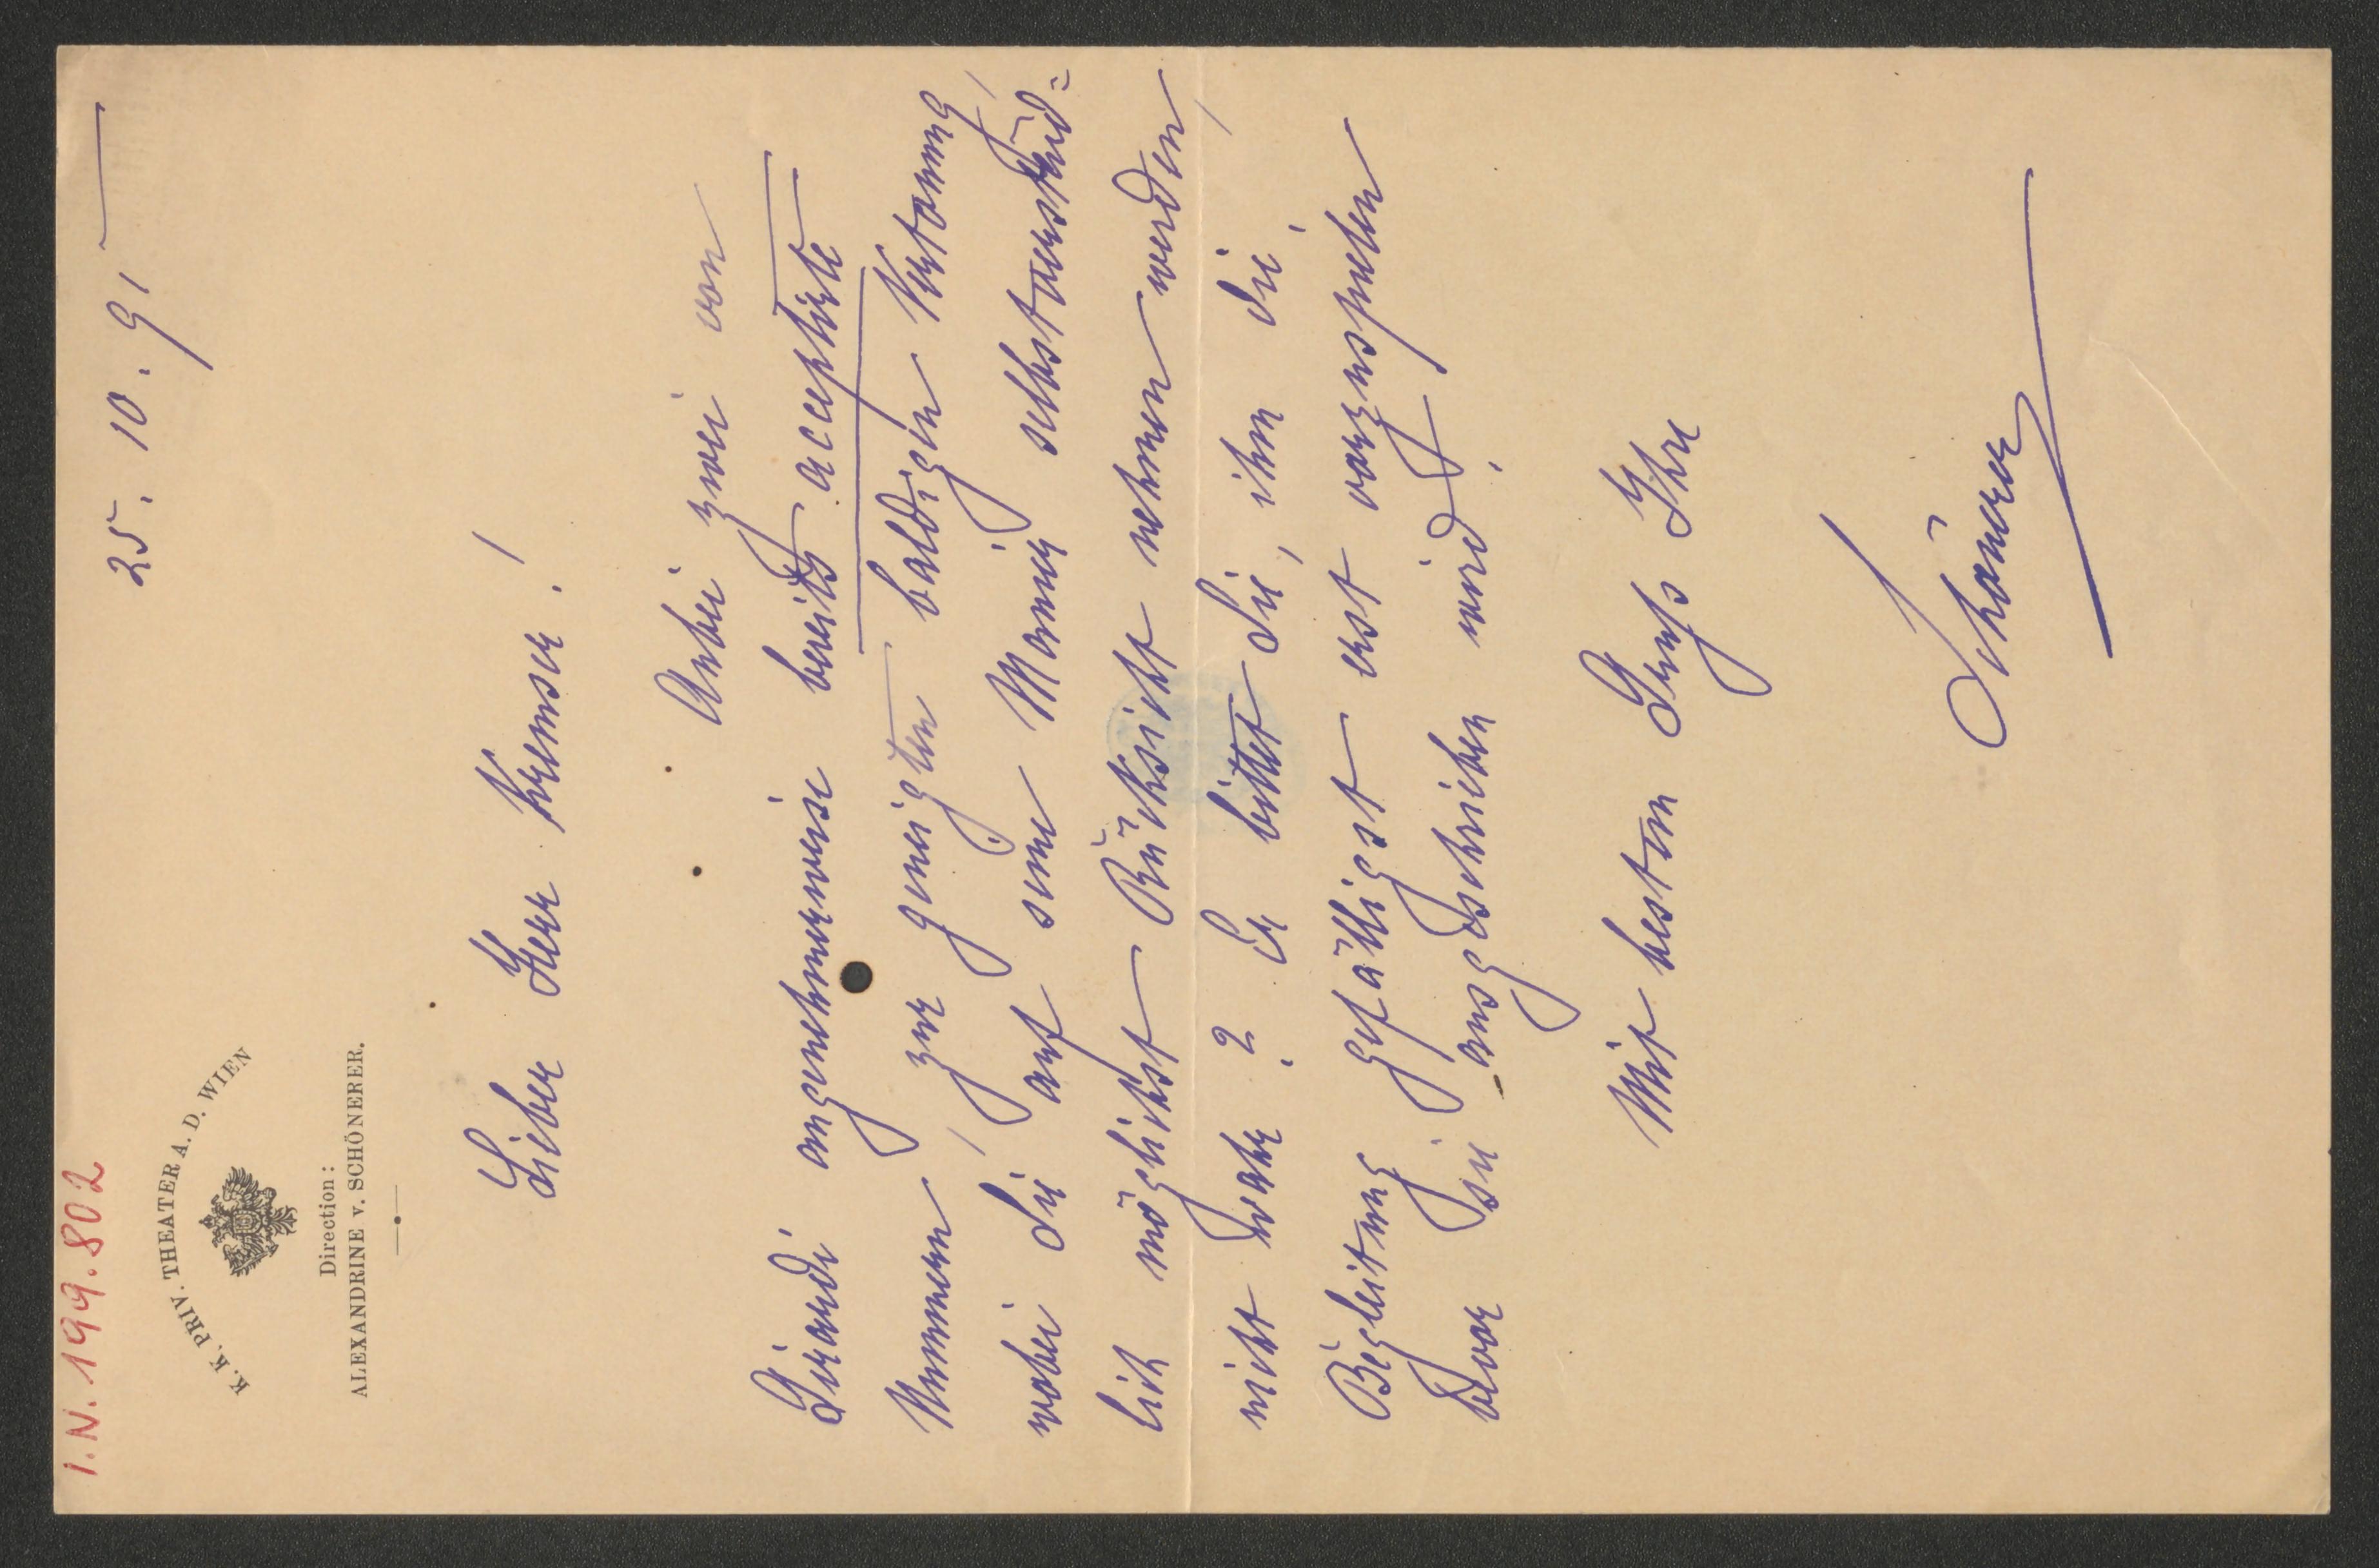 I.N. 199.802
K. K. PRIV. THEATER A. D. WIEN
Direction:
ALEXANDRINE v. SCHÖNERER.
25. 10. 91
Lieber Herr Kremser!
Anbei zwei von
Girardi angenehmerweise bereits acceptirte
Nummern, zur geneigten baldigen Vertonung,
wobei Sie auf seine Manier selbstverständ=
lich möglichst Rücksicht nehmen werden,
nicht wahr? Er bittet Sie, ihm die
Begleitung gefälligst erst vorzuspielen
bevor sie ausgeschrieben wird.
Mit bestem Gruß Ihre
Schönerer